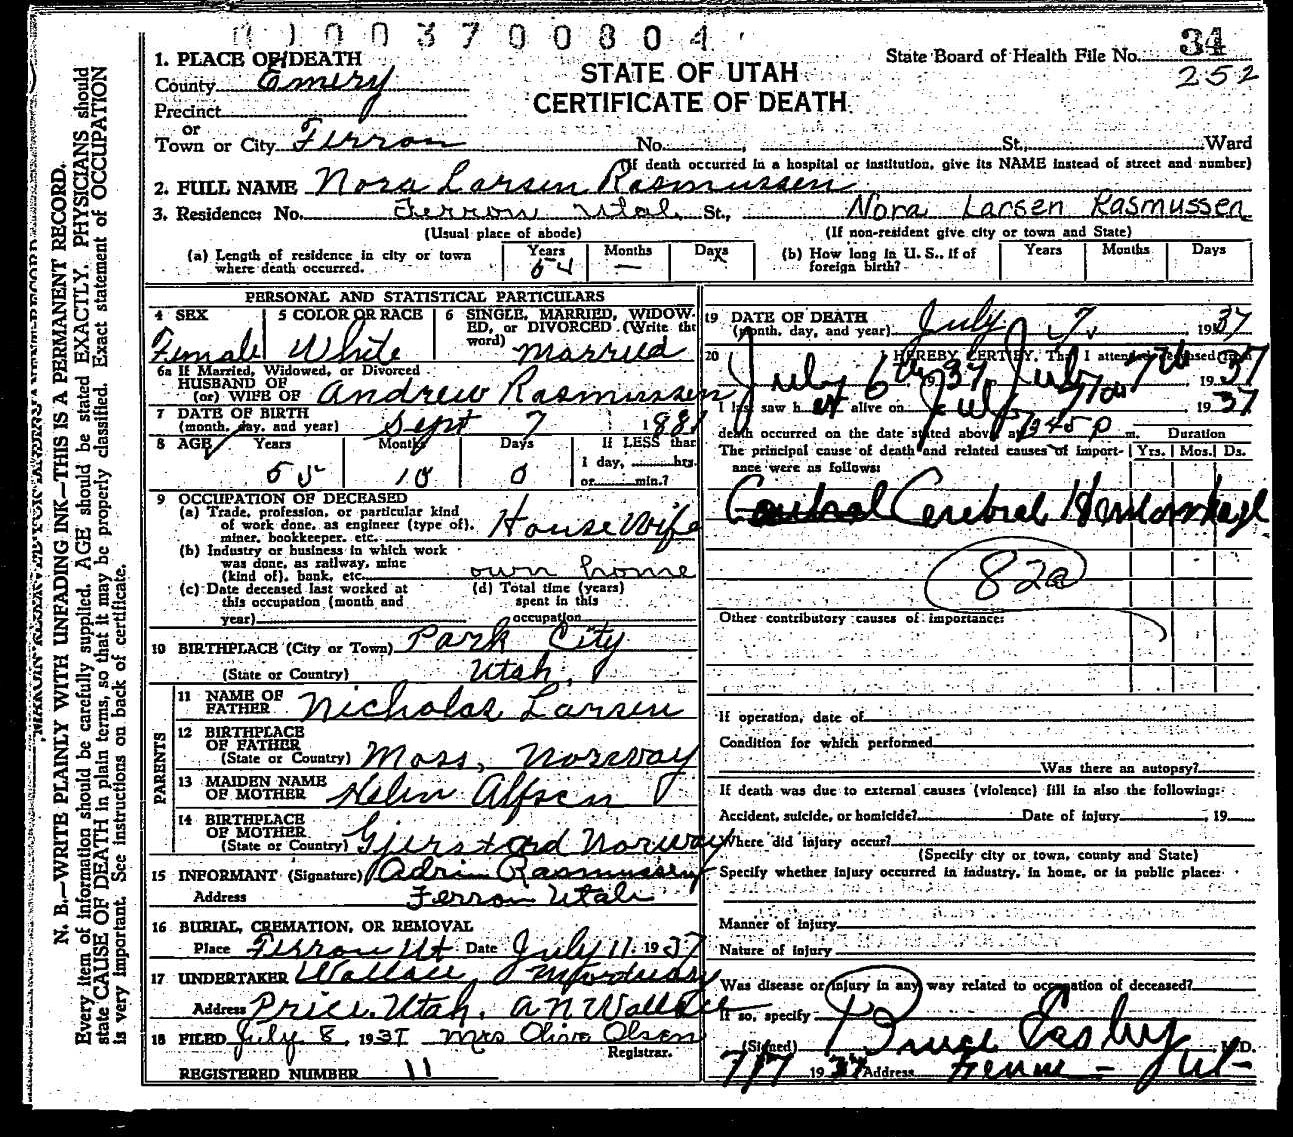 0 1 0 0 3 7 0 0 8 0 4
1. PLACE OF DEATH
County Emery
Precinct
or
Town or City Ferron No. , St., Ward
(If death occurred in a hospital or institution, give its NAME instead of street and number)
STATE OF UTAH
CERTIFICATE OF DEATH
State Board of Health File No. 34
252
2. FULL NAME Nora Larsen Rasmussen
3. Residence: No. Ferron Utah St., Nora Larsen Rasmussen
(Usual place of abode) (If non-resident give city or town and State)
(a) Length of residence in city or town where death occurred. Years 54 Months — Days
(b) How long in U. S., if of foreign birth? Years Months Days
PERSONAL AND STATISTICAL PARTICULARS
4 SEX Female
5 COLOR OR RACE White
6 SINGLE, MARRIED, WIDOWED, or DIVORCED (Write the word) Married
6a If Married, Widowed, or Divorced
HUSBAND OF
(or) WIFE OF Andrew Rasmussen
7 DATE OF BIRTH
(month, day, and year) Sept 7 1881
8 AGE Years 55 Months 10 Days 0 If LESS than
1 day, hrs.
or min.?
9 OCCUPATION OF DECEASED
(a) Trade, profession, or particular kind
of work done, as engineer (type of),
miner, bookkeeper, etc. House Wife
(b) Industry or business in which work
was done, as railway, mine
(kind of), bank, etc. own home
(c) Date deceased last worked at
this occupation (month and
year)
(d) Total time (years)
spent in this
occupation
10 BIRTHPLACE (City or Town) Park City
(State or Country) Utah.
PARENTS
11 NAME OF
FATHER Nicholas Larsen
12 BIRTHPLACE
OF FATHER
(State or Country) Moss, Norway
13 MAIDEN NAME
OF MOTHER Helen Alfsen
14 BIRTHPLACE
OF MOTHER
(State or Country) Gjerstad Norway
15 INFORMANT (Signature) Rasmussen
Address Ferron Utah
16 BURIAL, CREMATION, OR REMOVAL
Place Ferron Ut Date July 11. 1937
17 UNDERTAKER Wallace Mortuary
Address Price, Utah. A N Wallace
18 FILED July 8, 1937 Mrs Olive Olsen
Registrar.
REGISTERED NUMBER 11
19 DATE OF DEATH
(month, day, and year) July 7, 1937
20 I HEREBY CERTIFY, That I attended deceased from
July 6th 1937, July 7th 1937
I last saw her alive on July 7th 1937
death occurred on the date stated above at 7:45 P m. Duration
The principal cause of death and related causes of importance were as follows: Yrs. Mos. Ds.
Cerebral Hemorrhage
82a
Other contributory causes of importance:
If operation, date of
Condition for which performed
Was there an autopsy?
If death was due to external causes (violence) fill in also the following:
Accident, suicide, or homicide? Date of injury , 19
Where did injury occur?
(Specify city or town, county and State)
Specify whether injury occurred in industry, in home, or in public place:
Manner of injury
Nature of injury
Was disease or injury in any way related to occupation of deceased?
If so, specify
(Signed) Bruce Easley M.D.
7/7 1937 Address Ferron - Ut-
N. B.—WRITE PLAINLY WITH UNFADING INK—THIS IS A PERMANENT RECORD.
Every item of information should be carefully supplied. AGE should be stated EXACTLY. PHYSICIANS should
state CAUSE OF DEATH in plain terms, so that it may be properly classified. Exact statement of OCCUPATION
is very important. See instructions on back of certificate.